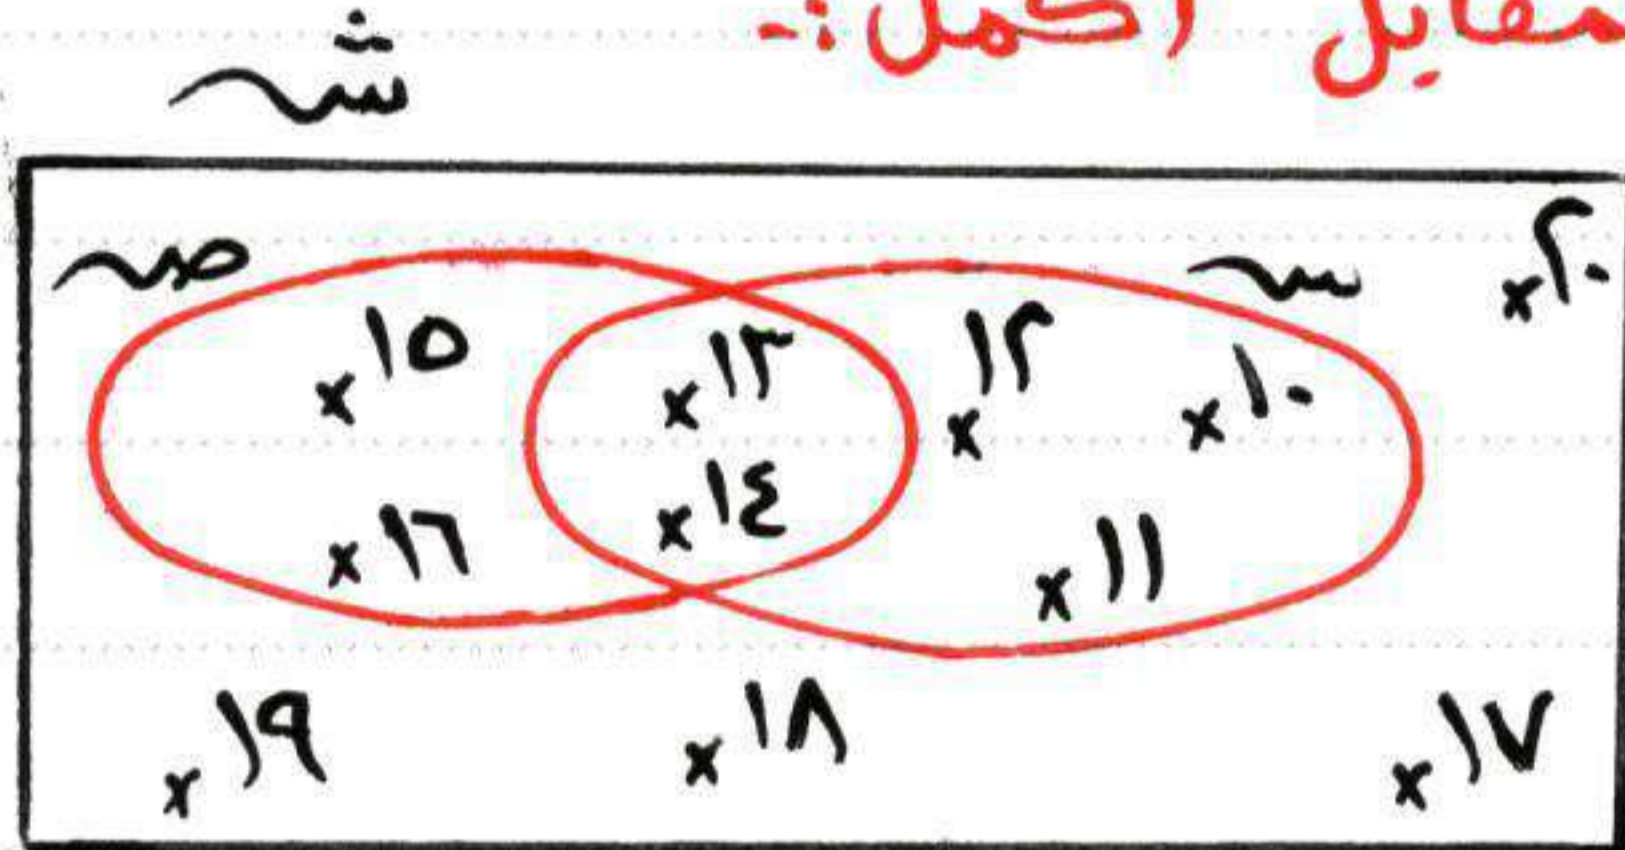 مقابل أكمل :-
ش
س ص ٢٠
١٥ ١٣ ١٢ ١٠
١٦ ١٤ ١١
١٩ ١٨ ١٧